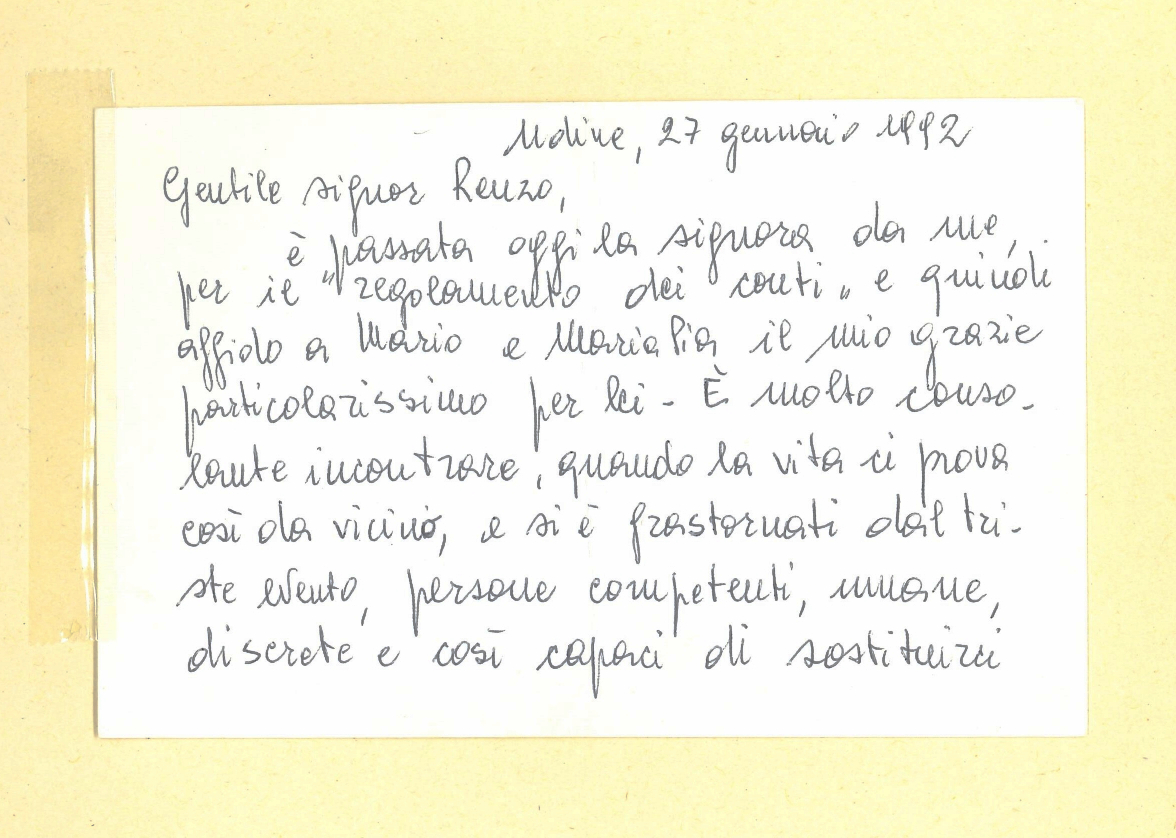 Udine, 27 gennaio 1992
Gentile signor Renzo,
è passata oggi la signora da me,
per il "regolamento dei conti" e quindi
affido a Mario e Maria Pia il mio grazie
particolarissimo per lei - È molto conso-
lante incontrare, quando la vita ci prova
così da vicino, e si è frastornati dal tri-
ste evento, persone competenti, umane,
discrete e così capaci di sostituirci